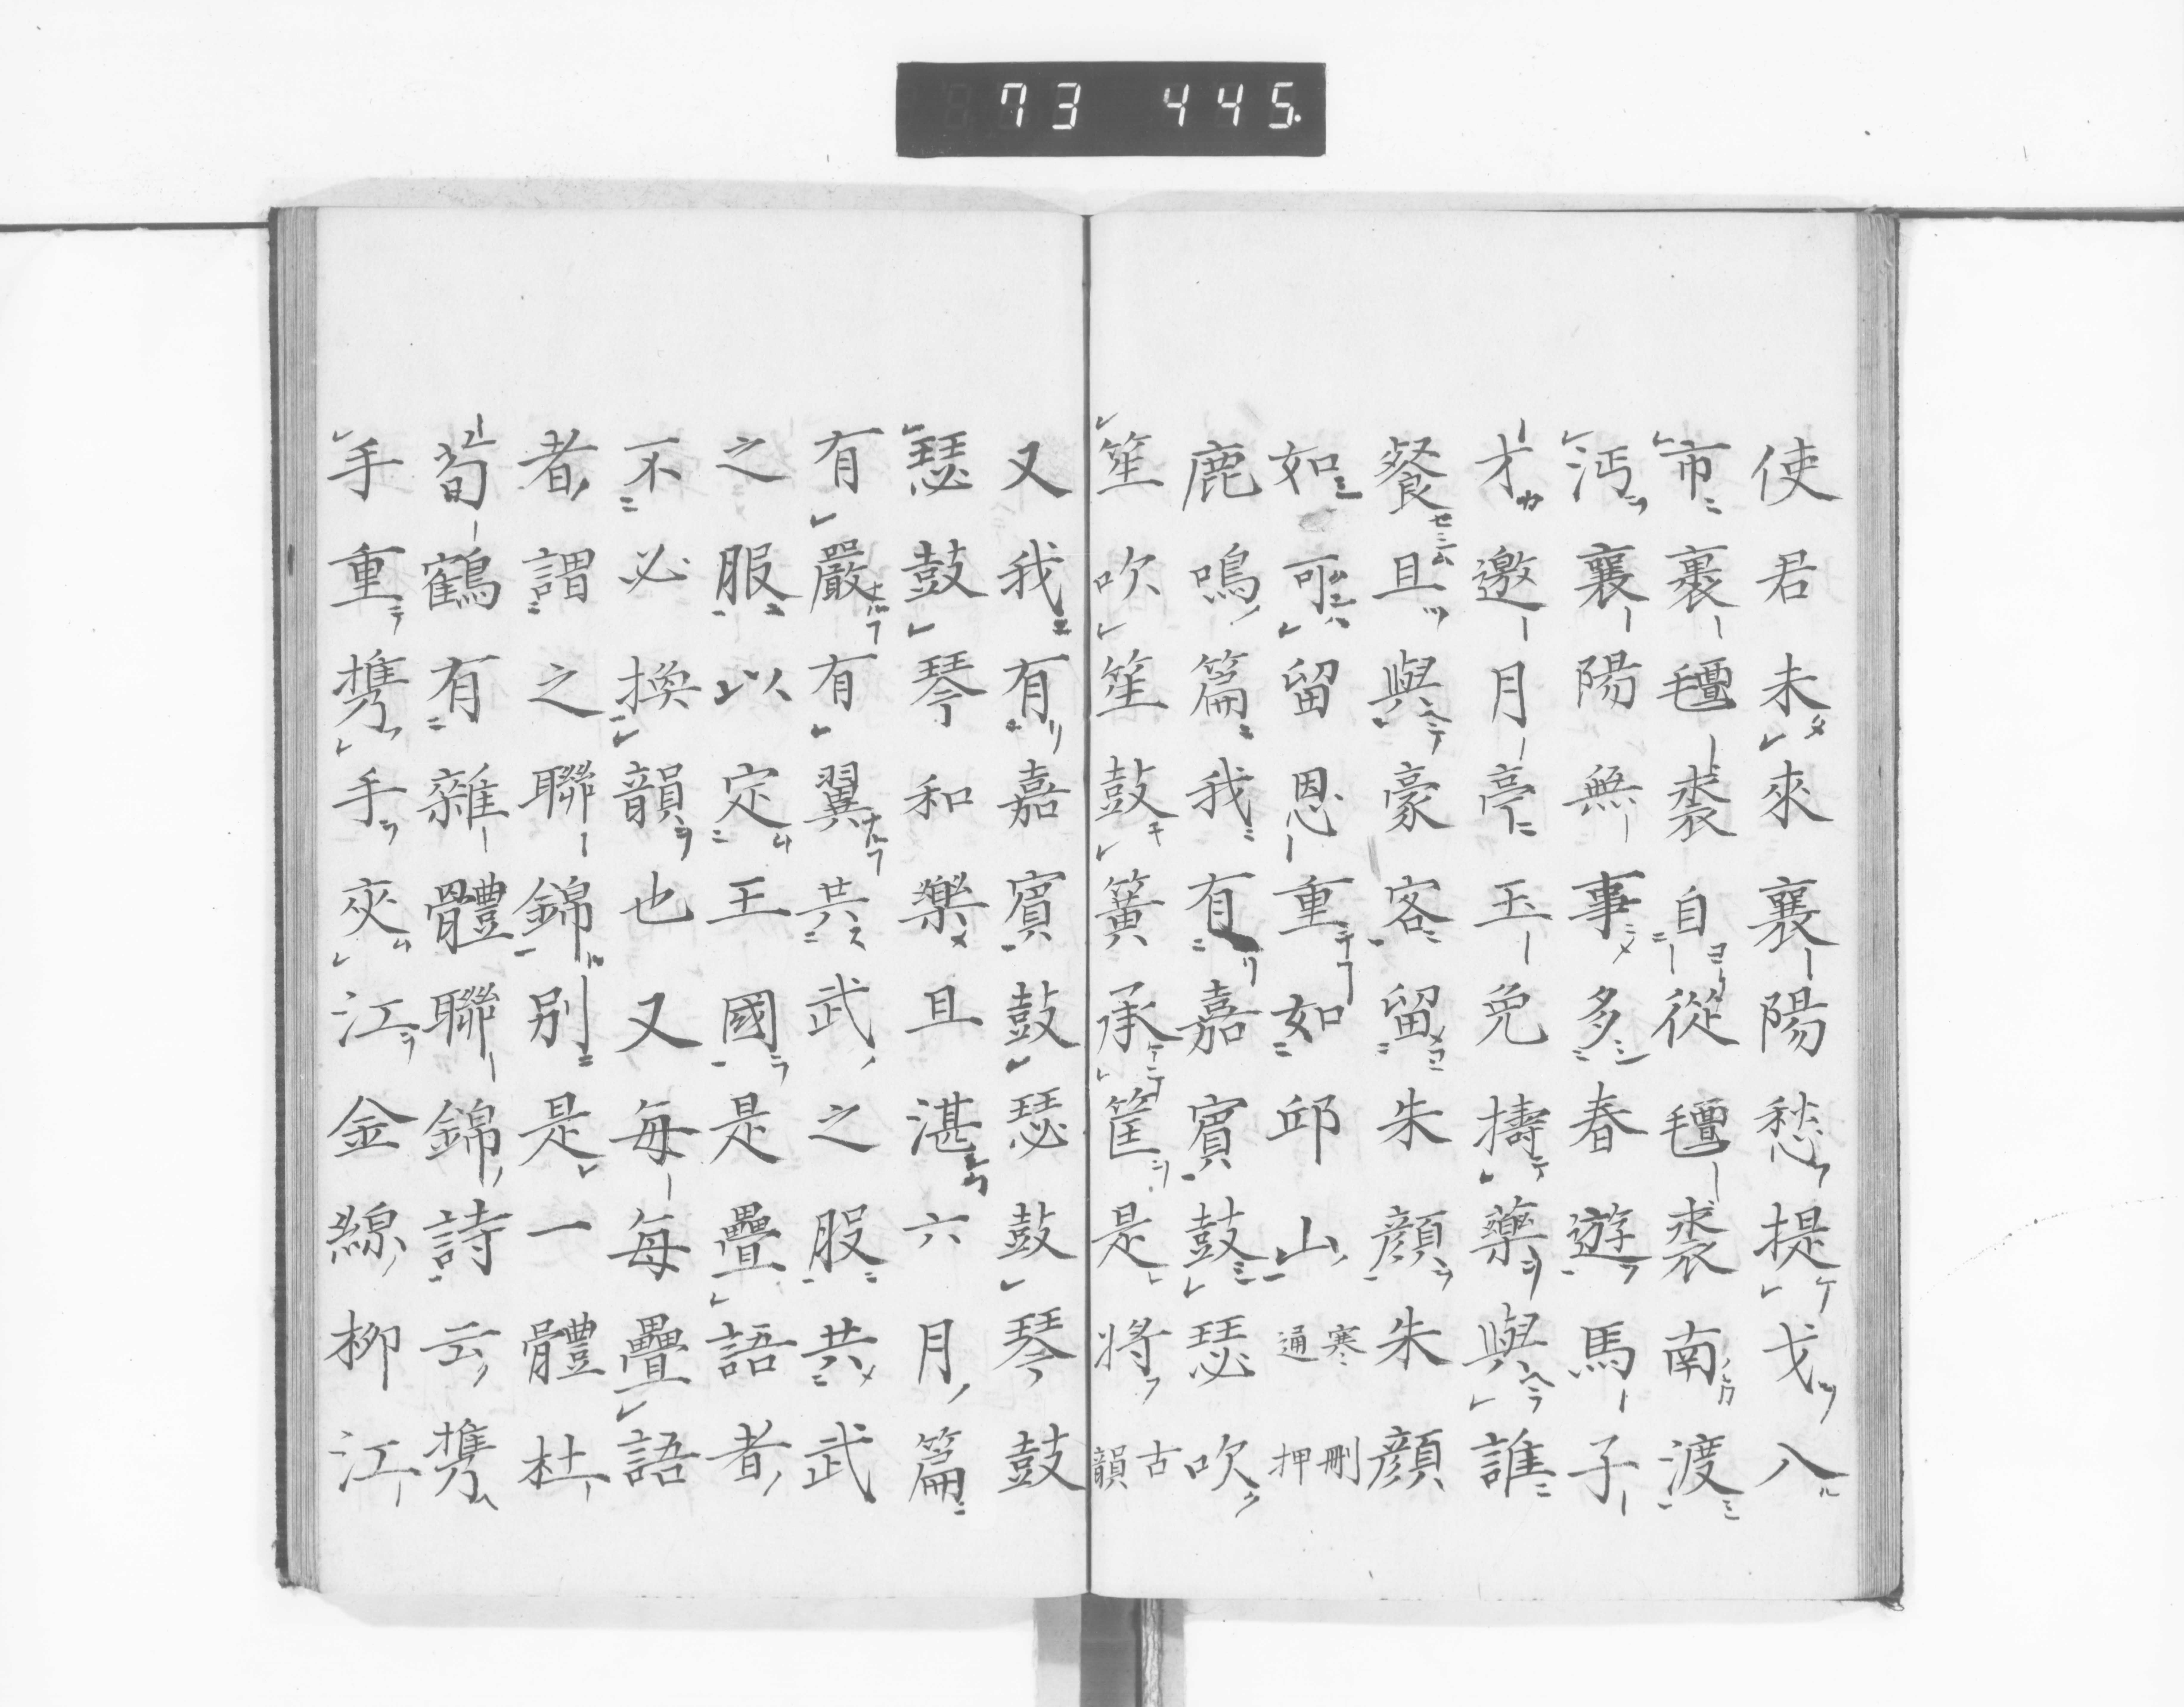 73 445.
使君未來襄陽愁提戈八
市裹氊裘自從氊裘南渡
沔襄陽無事多春遊馬子
才邀月亭玉兔擣藥與誰
餐且與豪客留朱顔朱顔
如可留恩重如邱山寒刪通押
鹿鳴篇我有嘉賓鼓瑟吹
笙吹笙鼓簧承筐是將古韻
又我有嘉賓鼓瑟鼓琴鼓
瑟鼓琴和樂且湛六月篇
有嚴有翼共武之服共武
之服以定王國是疊語者
不必換韻也又每每疊語
者謂之聯錦別是一體杜
荀鶴有雜體聯錦詩云携
手重携手夾江金線柳江